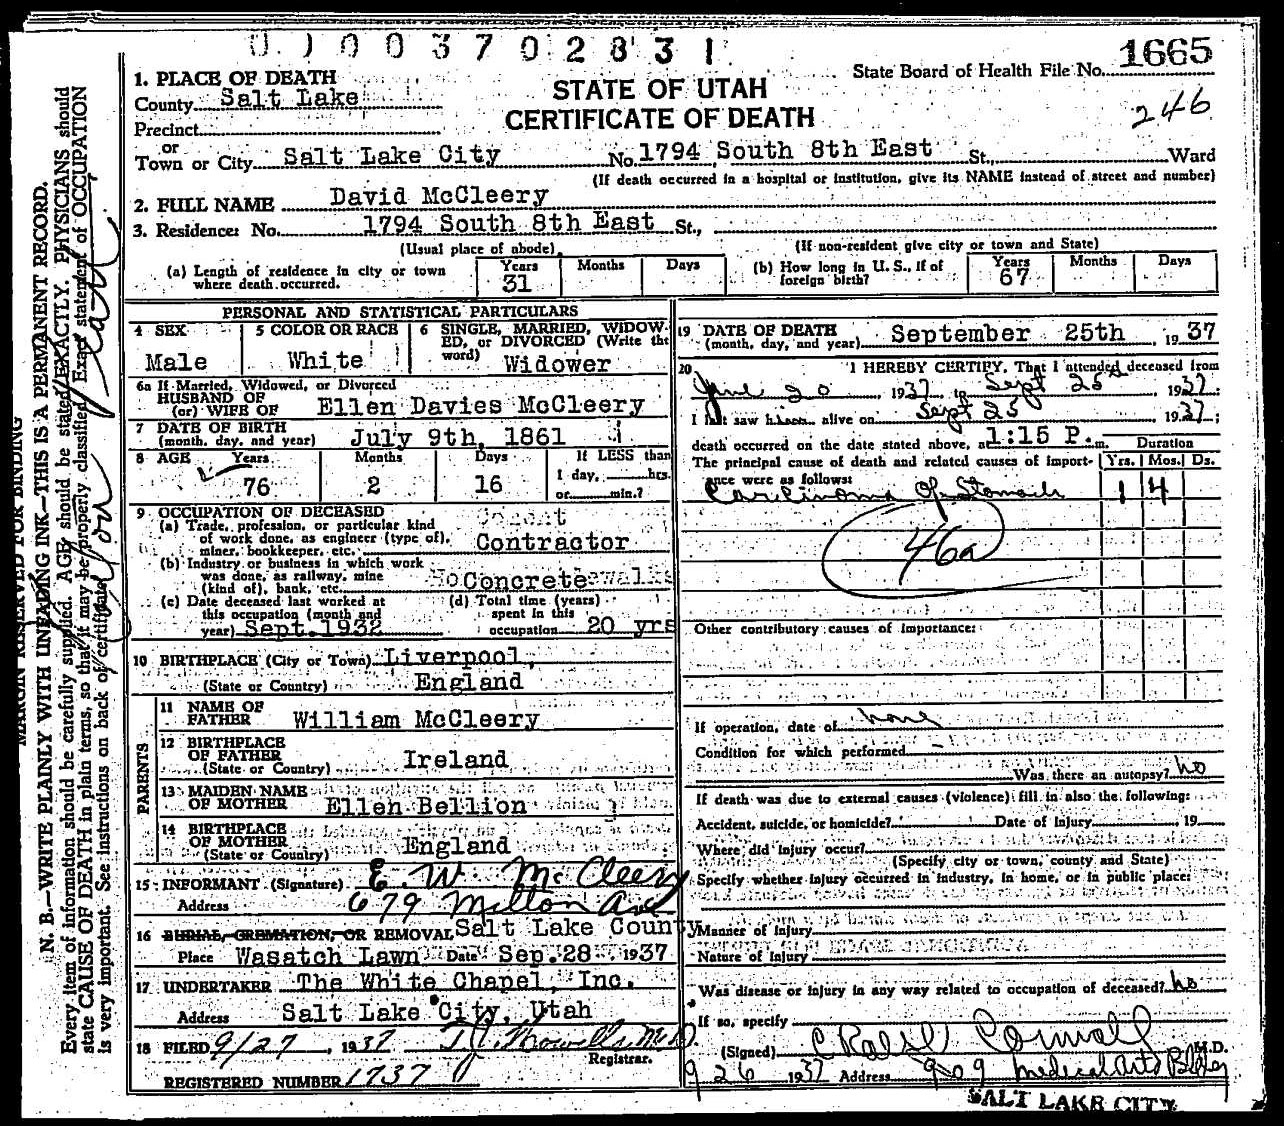 0100370 2831
1665
State Board of Health File No.
246
STATE OF UTAH
CERTIFICATE OF DEATH
1. PLACE OF DEATH
County Salt Lake
Precinct
or
Town or City Salt Lake City No. 1794 South 8th East St., Ward
(If death occurred in a hospital or institution, give its NAME instead of street and number)
2. FULL NAME David McCleery
3. Residence: No. 1794 South 8th East St.,
(Usual place of abode) (If non-resident give city or town and State)
(a) Length of residence in city or town where death occurred. Years 31 Months Days
(b) How long in U. S., if of foreign birth? Years 67 Months Days
PERSONAL AND STATISTICAL PARTICULARS
4 SEX Male
5 COLOR OR RACE White
6 SINGLE, MARRIED, WIDOWED, or DIVORCED (Write the word) Widower
6a If Married, Widowed, or Divorced
HUSBAND OF
(or) WIFE OF Ellen Davies McCleery
7 DATE OF BIRTH
(month, day, and year) July 9th, 1861
8 AGE Years 76 Months 2 Days 16 If LESS than 1 day, hrs. or min.?
9 OCCUPATION OF DECEASED
(a) Trade, profession, or particular kind
of work done, as engineer (type of),
miner, bookkeeper, etc. Contractor
(b) Industry or business in which work
was done, as railway, mine
(kind of), bank, etc. Concrete
(c) Date deceased last worked at
this occupation (month and
year) Sept. 1932
(d) Total time (years)
spent in this
occupation 20 yrs
10 BIRTHPLACE (City or Town) Liverpool,
(State or Country) England
PARENTS
11 NAME OF
FATHER William McCleery
12 BIRTHPLACE
OF FATHER
(State or Country) Ireland
13 MAIDEN NAME
OF MOTHER Ellen Bellion
14 BIRTHPLACE
OF MOTHER
(State or Country) England
15 INFORMANT (Signature) E. W. McCleery
Address 679 Milton Ave
16 BURIAL, CREMATION, OR REMOVAL Salt Lake County
Place Wasatch Lawn Date Sep. 28 1937
17 UNDERTAKER The White Chapel, Inc.
Address Salt Lake City, Utah
18 FILED 9/27, 1937
Registrar.
REGISTERED NUMBER 1737
19 DATE OF DEATH
(month, day, and year) September 25th, 1937
20 I HEREBY CERTIFY, That I attended deceased from
June 20, 1937 to Sept 25, 1937;
I last saw him alive on Sept 25, 1937;
death occurred on the date stated above, at 1:15 P. m.
Duration
The principal cause of death and related causes of importance were as follows: Yrs. Mos. Ds.
Carcinoma of Stomach 1 4
46a
Other contributory causes of importance:
If operation, date of none
Condition for which performed -
Was there an autopsy? no
If death was due to external causes (violence) fill in also the following:
Accident, suicide, or homicide? Date of injury 19
Where did injury occur?
(Specify city or town, county and State)
Specify whether injury occurred in industry, in home, or in public place:
Manner of Injury
Nature of Injury
Was disease or injury in any way related to occupation of deceased? no
If so, specify
(Signed) Cornwall M.D.
9 26 1937 Address 909 Medical Arts Bldg
SALT LAKE CITY
MARGIN RESERVED FOR BINDING
N. B.—WRITE PLAINLY WITH UNFADING INK—THIS IS A PERMANENT RECORD.
Every item of information should be carefully supplied. AGE should be stated EXACTLY. PHYSICIANS should
state CAUSE OF DEATH in plain terms, so that it may be properly classified. Exact statement of OCCUPATION
is very important. See instructions on back of certificate.